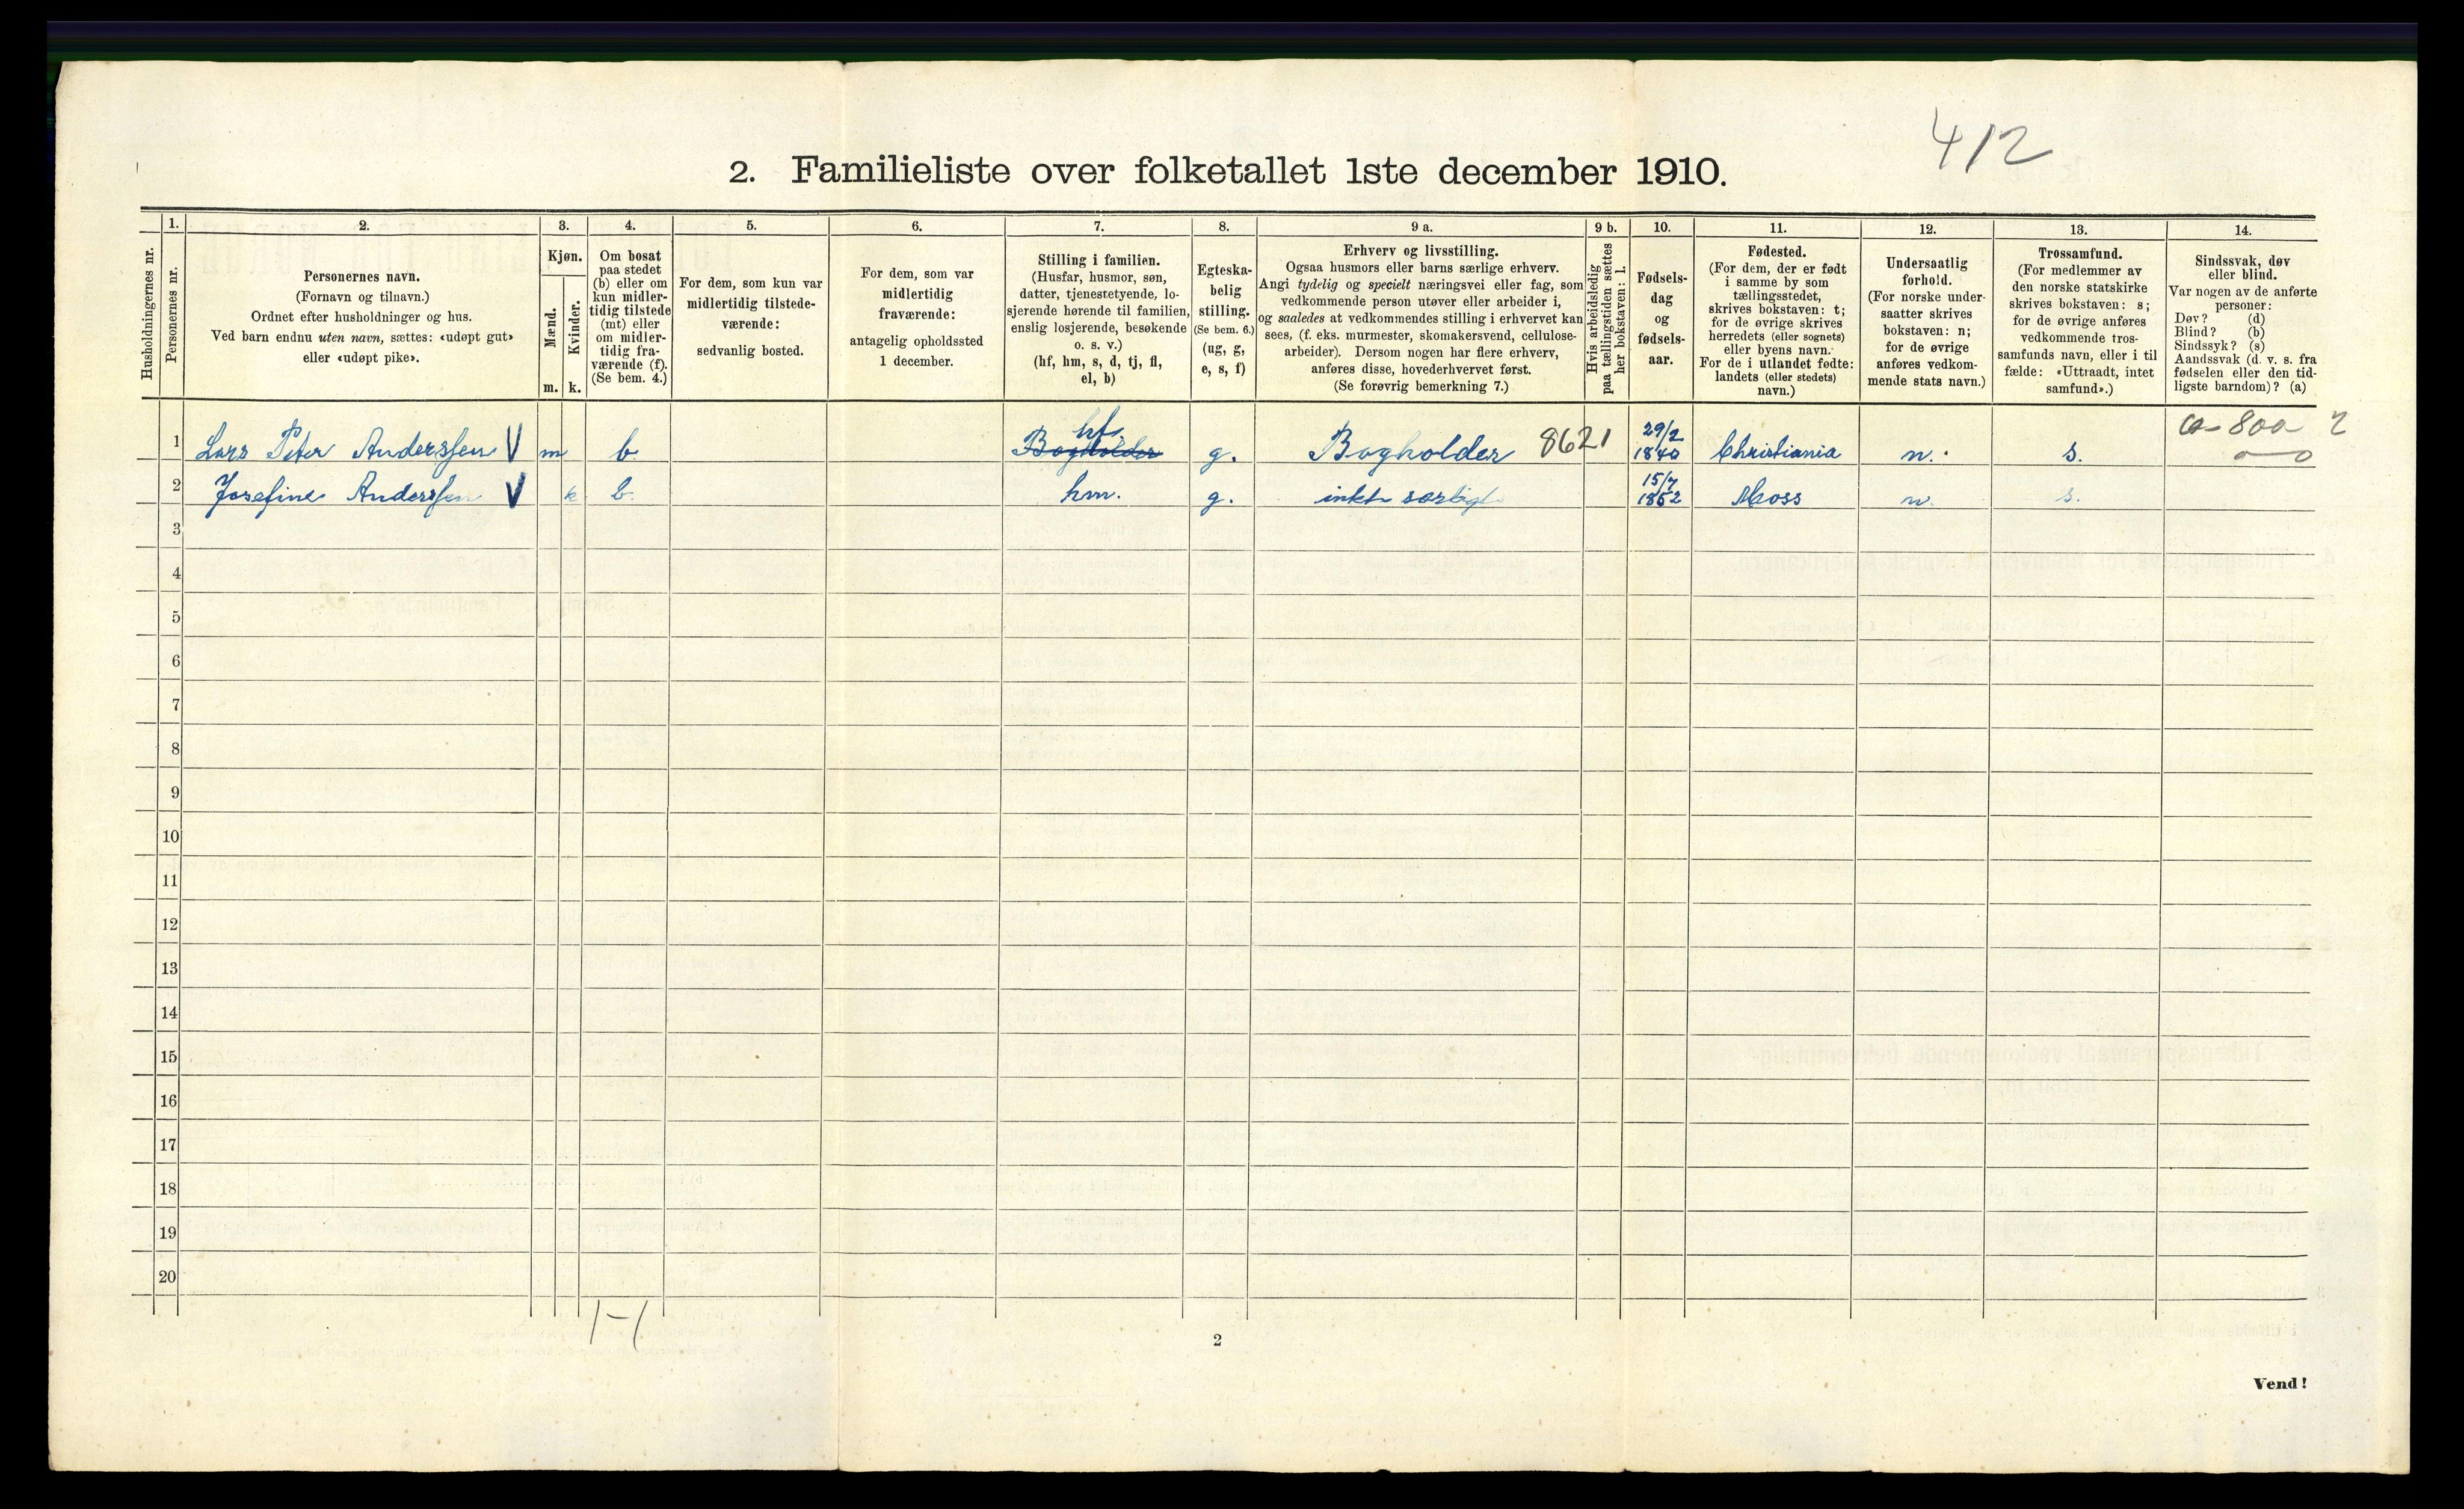 412
2. Familieliste over folketallet 1ste december 1910.
Husholdningernes nr.
1.
Personernes nr.
2.
Personernes navn.
(Fornavn og tilnavn.)
Ordnet efter husholdninger og hus.
Ved barn endnu uten navn, sættes: «udøpt gut»
eller «udøpt pike».
3.
Kjøn.
Mænd.
m.
Kvinder.
k.
4.
Om bosat
paa stedet
(b) eller om
kun midler-
tidig tilstede
(mt) eller
om midler-
tidig fra-
værende (f).
(Se bem. 4.)
5.
For dem, som kun var
midlertidig tilstede-
værende:
sedvanlig bosted.
6.
For dem, som var
midlertidig
fraværende:
antagelig opholdssted
1 december.
7.
Stilling i familien.
(Husfar, husmor, søn,
datter, tjenestetyende, lo-
sjerende hørende til familien,
enslig losjerende, besøkende
o. s. v.)
(hf, hm, s, d, tj, fl,
el, b)
8.
Egteska-
belig
stilling.
(Se bem. 6.)
(ug, g,
e, s, f)
9 a.
Erhverv og livsstilling.
Ogsaa husmors eller barns særlige erhverv.
Angi tydelig og specielt næringsvei eller fag, som
vedkommende person utøver eller arbeider i,
og saaledes at vedkommendes stilling i erhvervet kan
sees, (f. eks. murmester, skomakersvend, cellulose-
arbeider). Dersom nogen har flere erhverv,
anføres disse, hovederhvervet først.
(Se forøvrig bemerkning 7.)
9 b.
Hvis arbeidsledig
paa tællingstiden sættes
her bokstaven: l.
10.
Fødsels-
dag
og
fødsels-
aar.
11.
Fødested.
(For dem, der er født
i samme by som
tællingsstedet,
skrives bokstaven: t;
for de øvrige skrives
herredets (eller sognets)
eller byens navn.
For de i utlandet fødte:
landets (eller stedets)
navn.)
12.
Undersaatlig
forhold.
(For norske under-
saatter skrives
bokstaven: n;
for de øvrige
anføres vedkom-
mende stats navn.)
13.
Trossamfund.
(For medlemmer av
den norske statskirke
skrives bokstaven: s;
for de øvrige anføres
vedkommende tros-
samfunds navn, eller i til
fælde: «Uttraadt, intet
samfund».)
14.
Sindssvak, døv
eller blind.
Var nogen av de anførte
personer:
Døv? (d)
Blind? (b)
Sindssyk? (s)
Aandssvak (d. v. s. fra
fødselen eller den tid-
ligste barndom)? (a)
1 Lars Peter Anderssen V m b. hf. Bogholder g. Bogholder 8621 29/2 1840 Christiania n. s. 800
2 Josefine Anderssen V k b. hm. g. inkt særligt 15/7 1852 Moss n. s.
3
4
5
6
7
8
9
10
11
12
13
14
15
16
17
18
19
20
1-1
2
Vend!